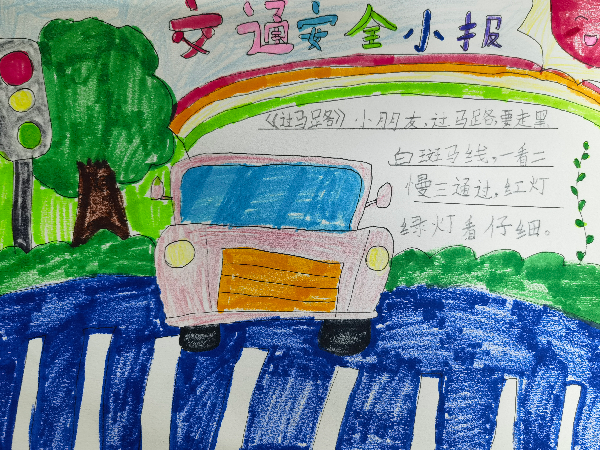 交通安全小报
《过马路》小朋友,过马路,要走黑
白斑马线,一看二
慢三通过,红灯
绿灯看仔细。